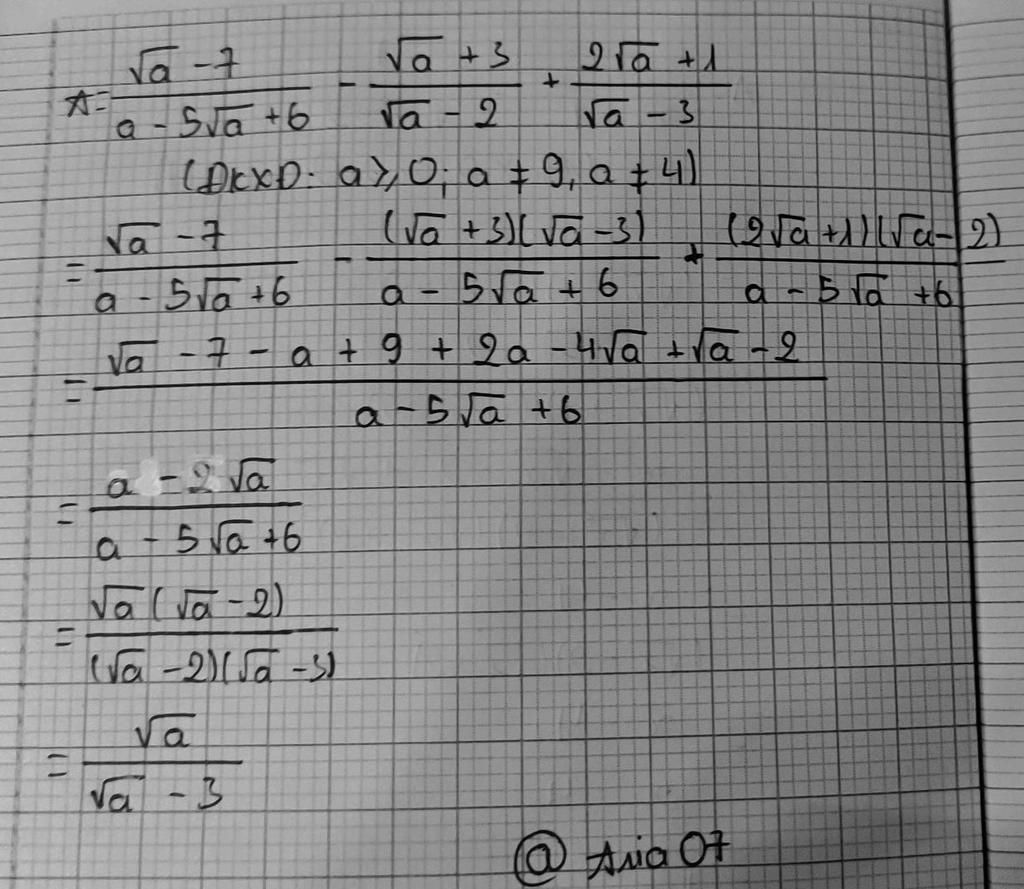 A = (√a - 7)/(a - 5√a + 6) - (√a + 3)/(√a - 2) + (2√a + 1)/(√a - 3)
(ĐKXD: a ≥ 0; a ≠ 9, a ≠ 4)
= (√a - 7)/(a - 5√a + 6) - ((√a + 3)(√a - 3))/(a - 5√a + 6) + ((2√a + 1)(√a - 2))/(a - 5√a + 6)
= (√a - 7 - a + 9 + 2a - 4√a + √a - 2)/(a - 5√a + 6)
= (a - 2√a)/(a - 5√a + 6)
= (√a(√a - 2))/((√a - 2)(√a - 3))
= √a/(√a - 3)